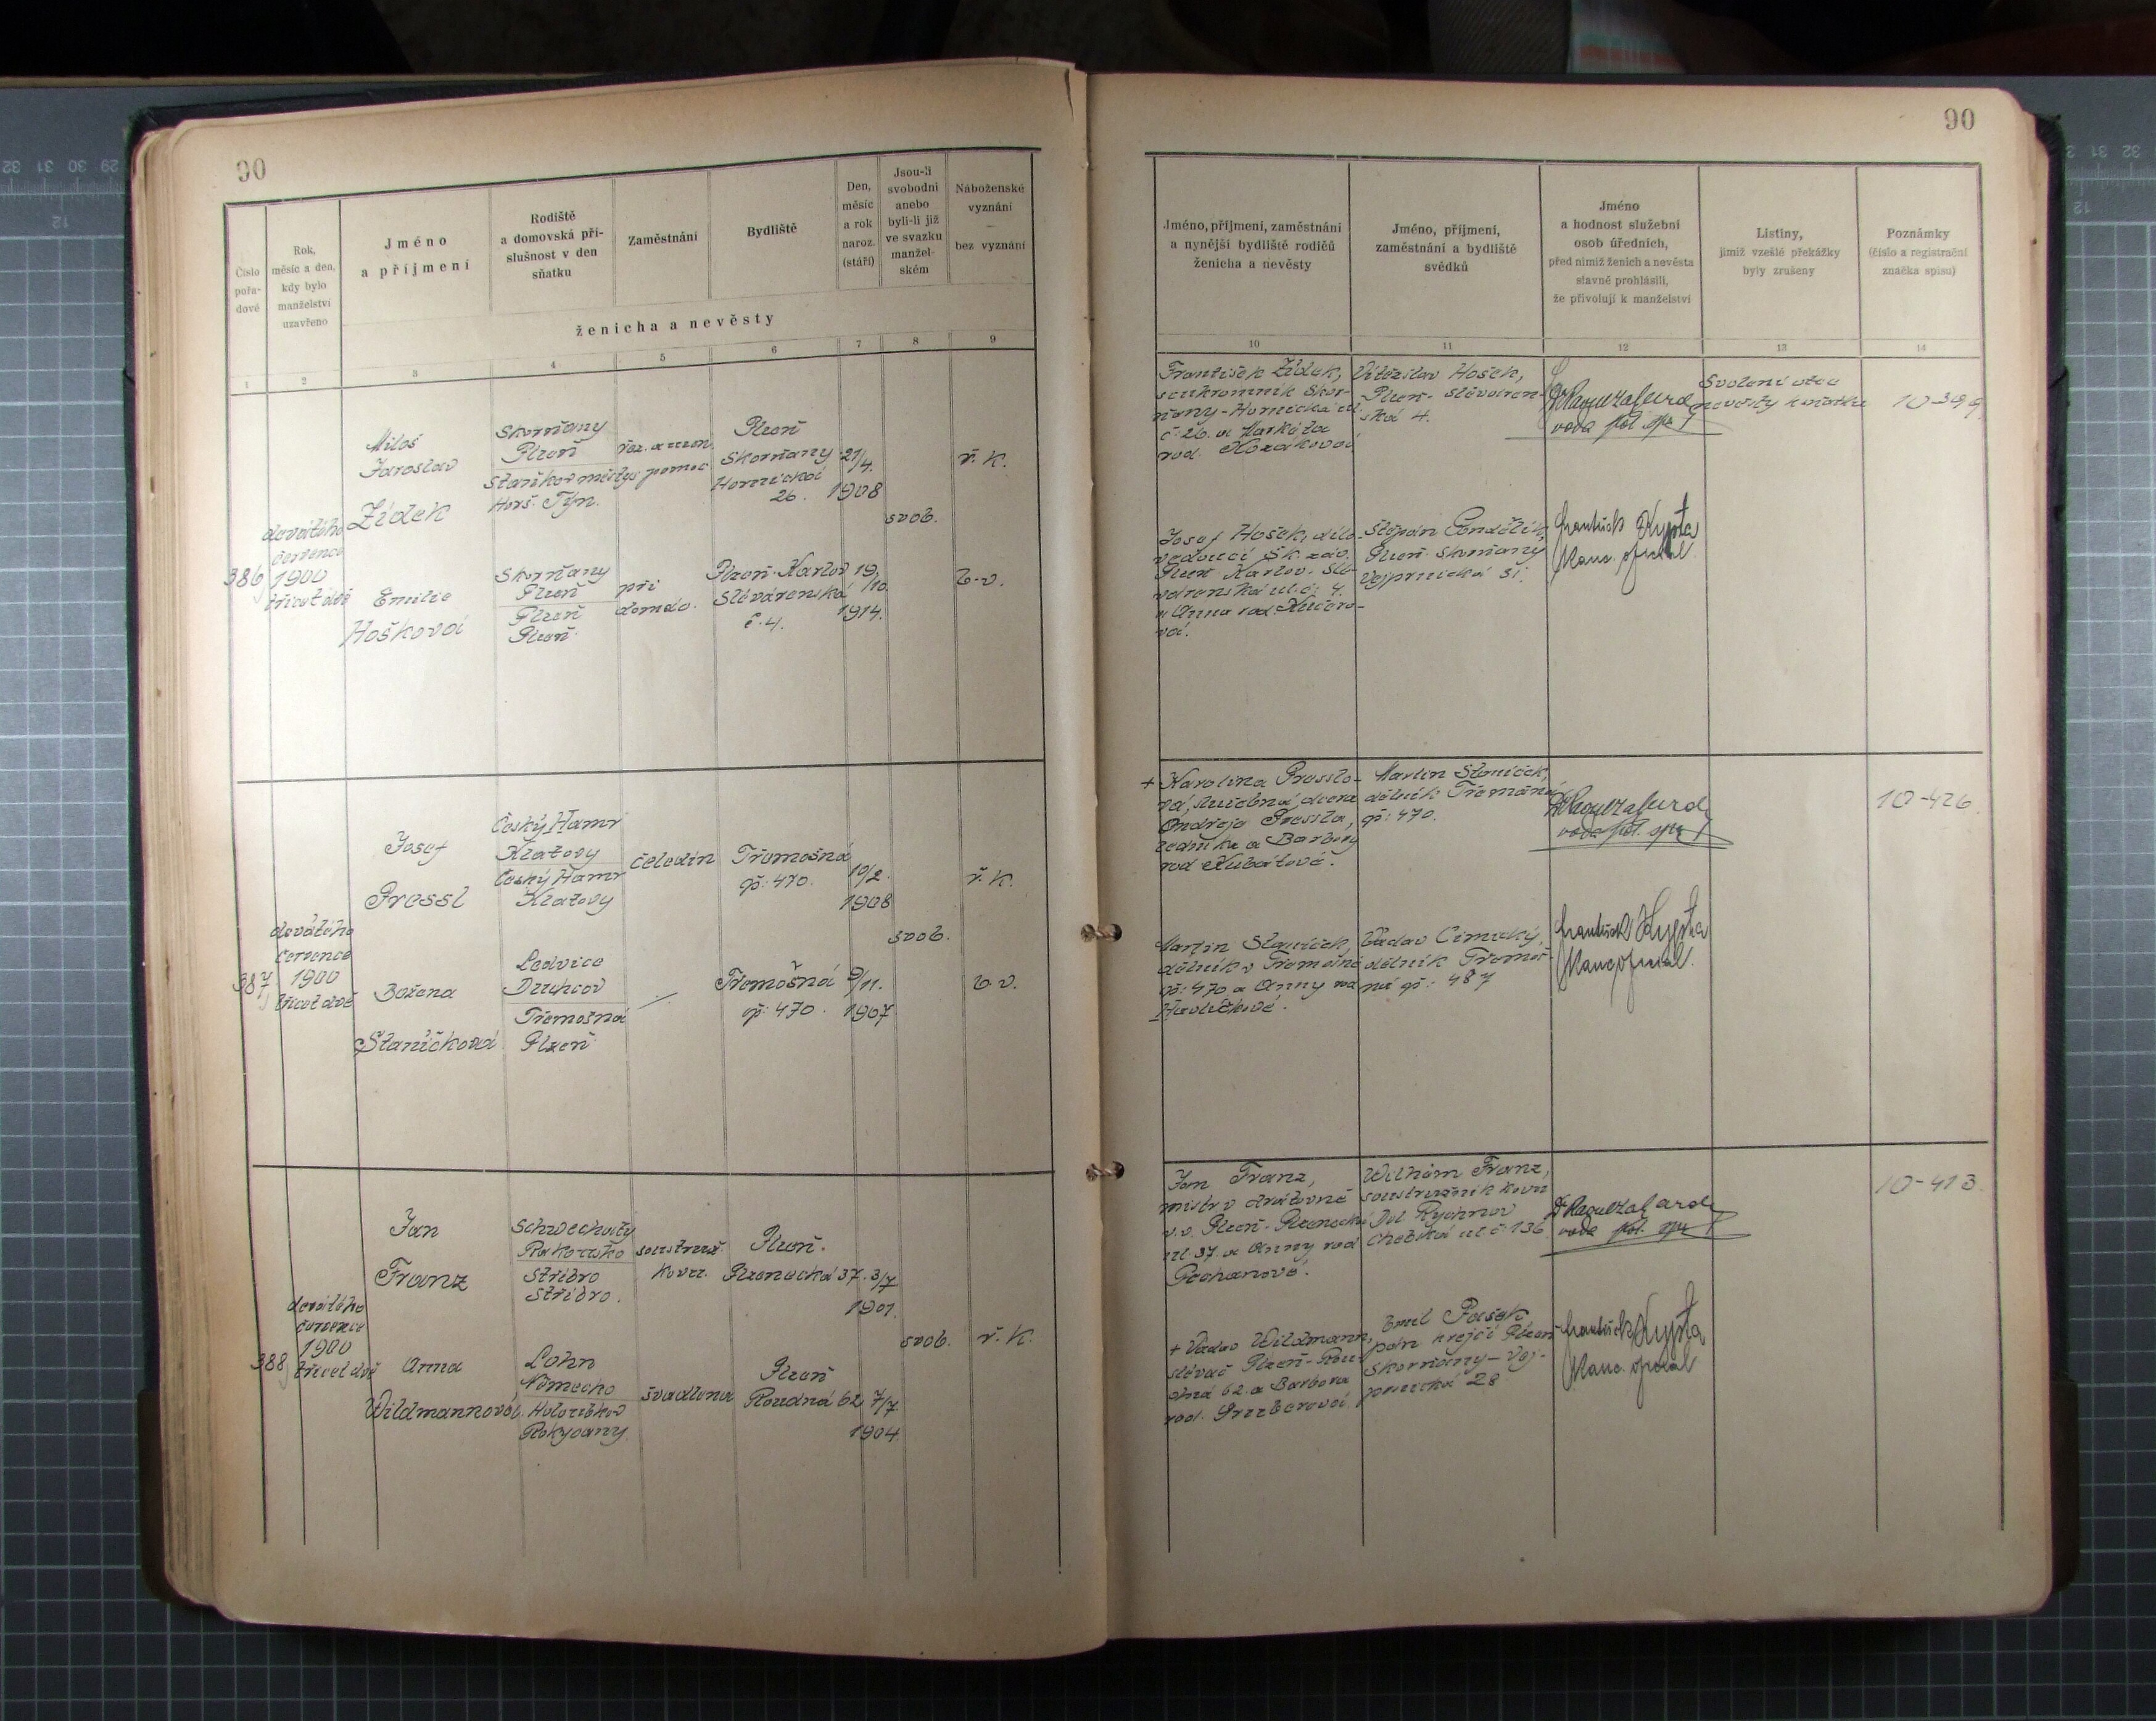 90
Číslo
pořa-
dové
Rok,
měsíc a den,
kdy bylo
manželství
uzavřeno
Jméno
a příjmení
Rodiště
a domovská pří-
slušnost v den
sňatku
Zaměstnání
Bydliště
Den,
měsíc
a rok
naroz.
(stáří)
Jsou-li
svobodni
anebo
byli-li již
ve svazku
manžel-
ském
Náboženské
vyznání
—
bez vyznání
ženicha a nevěsty
1
2
3
4
5
6
7
8
9
386
devátého
července
1900
třicet dvě
Miloš
Jaroslav
Židek
Skvrňany
Plzeň
Horš. Týn.
Plzeň
Skvrňany
Hornická
26.
21/4.
1908
svob.
ř. k.
Emilie
Hošková
Skvrňany
Plzeň
Plzeň
Plzeň
při
domác.
Plzeň-Karlov
Slévárenská
č. 4.
19/10.
1914.
b. v.
387
devátého
července
1900
třicet dvě
Josef
Pressl
Český Hamr
Klatovy
Český Hamr
Klatovy
čeledín
Třemošná
čp: 470.
10/2.
1908
svob.
ř. k.
Božena
Staníčková
Ledvice
Duchcov
Třemošná
Plzeň
Třemošná
čp: 470.
9/11.
1907
b. v.
388
devátého
července
1900
třicet dvě
Jan
Franz
Schwechaty
Rakousko
Stříbro
Stříbro.
soustruž.
kovů.
Plzeň.
Plzenecká 37.
3/7
1901.
svob.
ř. k.
Anna
Wildmannová
Lohn
Německo
Holoubkov
Rokycany
švadlena
Plzeň
Roudná 62
7/7.
1904.
90
Jméno, příjmení, zaměstnání
a nynější bydliště rodičů
ženicha a nevěsty
Jméno, příjmení,
zaměstnání a bydliště
svědků
Jméno
a hodnost služební
osob úředních,
před nimiž ženich a nevěsta
slavně prohlásili,
že přivolují k manželství
Listiny,
jimiž vzešlé překážky
byly zrušeny
Poznámky
(číslo a registrační
značka spisu)
10
11
12
13
14
František Židek,
soukromník Skvr-
ňany-Hornická ul.
č: 26. a Markéta
rod. Kozáková
Vítězslav Hošek,
Plzeň- Sléváren-
ská 4.
vada pol. spr
Svolení otce
nevěsty k sňatku
10-399
Josef Hošek, dílo-
vedoucí Šk. záv.
Plzeň Karlov. Slé-
várenská ul. č: 4.
a Anna rod. Kučero-
vá.
Plzeň-Skvrňany
Vejprnická 31.
František Kypta
kanc. oficiál.
+ Karolina Presslo-
vá, služebná, dcera
Ondreje Pressla,
zedníka a Barbory
rod Kubátové.
Martin Staníček,
dělník Třemošná
čp: 470.
vada pol. spr
10-426.
Martin Staníček,
dělník v Třemošné
čp: 470 a Anny roz
Havlíčkové.
Václav Cimický,
dělník Třemoš-
ná čp: 487
František Kypta
kanc. oficiál.
Jan Franz,
mistr v drátovně
v. v. Plzeň-Plzenecká
ul 37. a Anny rod
Pechanové.
Wilhám Franz,
soustružník kovů
Dol Rychnov
Chebská ul č: 136.
vada pol. spr
10-413.
+ Václav Wildmann,
slévač Plzeň-Rou-
dná 62. a Barbora
rod. Gruberová.
Emil Pašek
pán. krejčí Plzeň-
Skvrňany-Vej-
prnická 28
František Kypta
kanc. oficiál